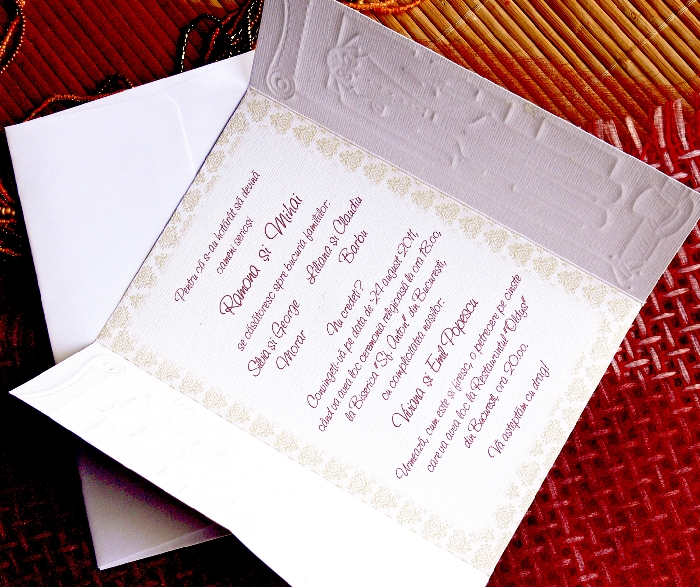 Pentru că s-au hotărât să devină
oameni serioși
Ramona și Mihai
se căsătoresc spre bucuria familiilor:
Silvia și George Liliana și Claudiu
Morar Barbu
Nu credeți?
Convingeți-vă pe data de :21 august 2011,
când va avea loc ceremonia religioasă la ora 18.00,
la Biserica "Sf. Anton" din București,
cu complicitatea nașilor:
Viviana și Emil Popescu
Urmează, cum este și firesc, o petrecere pe cinste
care va avea loc la Restaurantul "Oldys"
din București, ora 20.00.
Vă așteptăm cu drag!